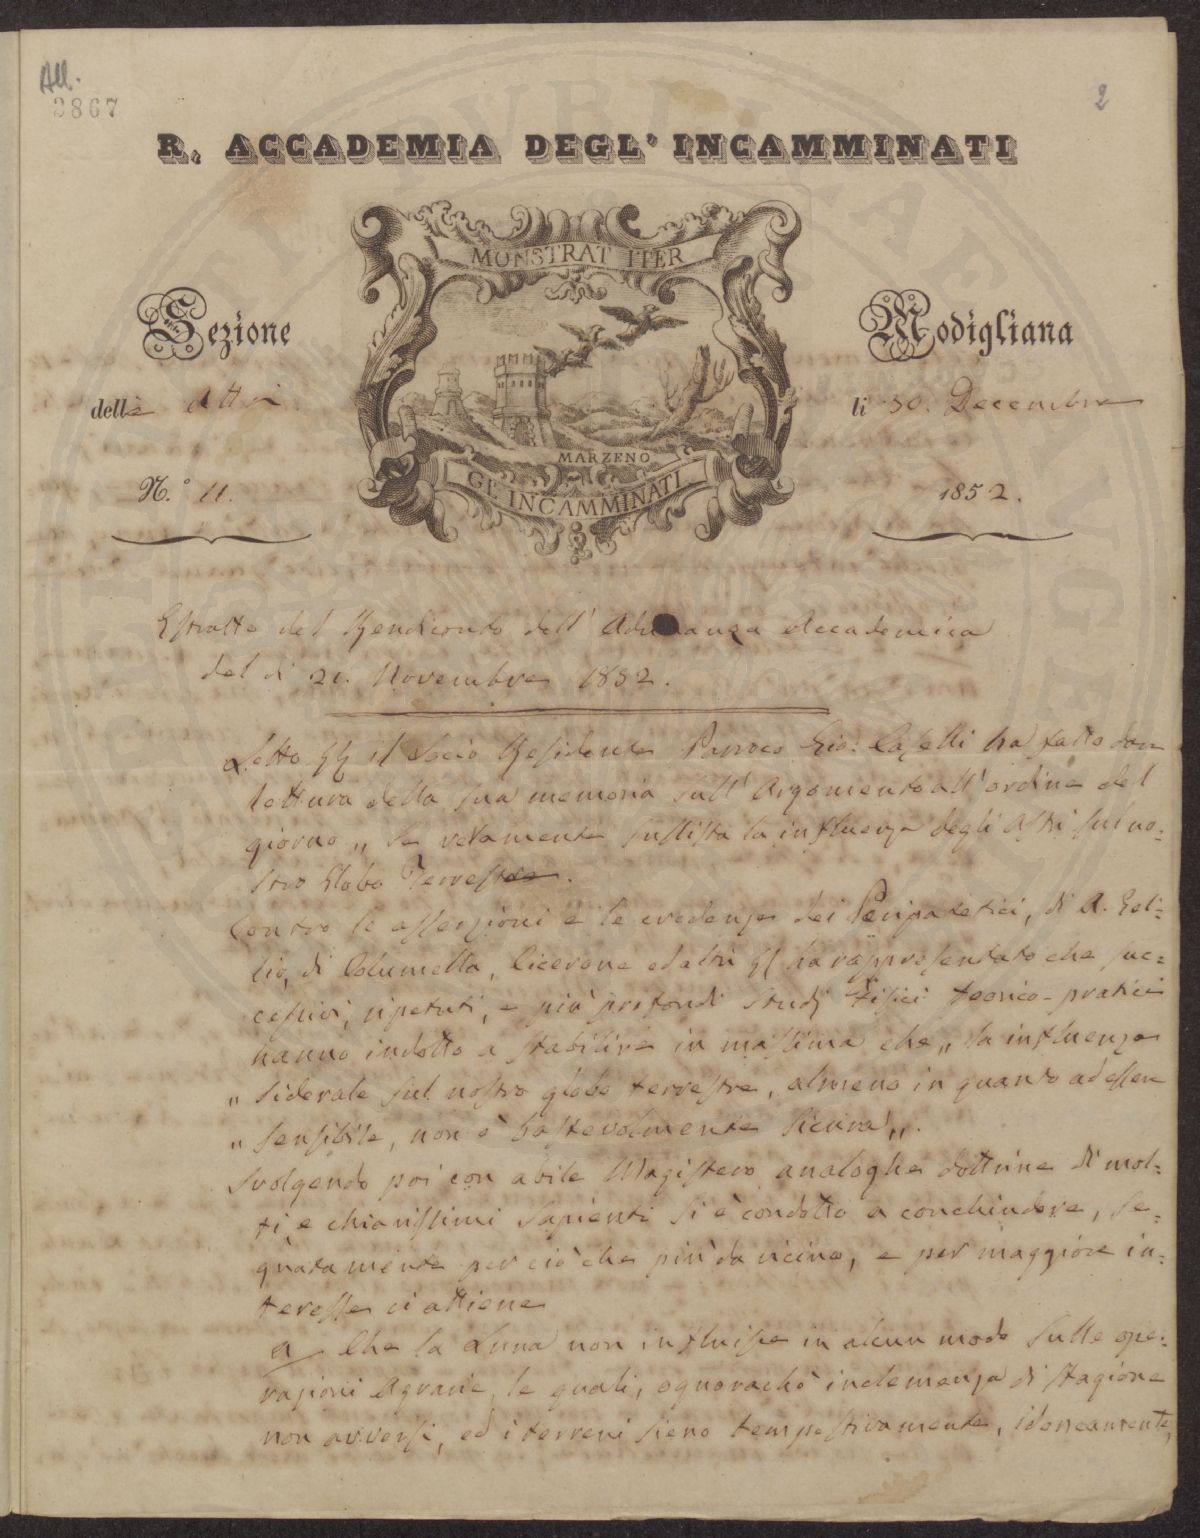 All.
3867
2
R. ACCADEMIA DEGL' INCAMMINATI
MONSTRAT ITER
Sezione
Modigliana
delle Atti
li 30. Decembre
MARZENO
GL' INCAMMINATI
N.° 11.
1852.
Estratto del Rendiconto dell' Adunanza Accademica
del dì 21. Novembre 1852.
Letto il Socio Residente Parroco Gio: Caselli ha fatto
lettura della sua memoria sull' Argomento all' ordine del
giorno „ Se veramente sussista la influenza degli Astri sul no-
stro Globo Terrestre.
Contro le asserzioni e le credenze dei Peripatetici, di A. Gel-
lio, di Columella, Cicerone ed altri Egli ha rappresentato che suc-
cessivi, ripetuti, e più profondi studj Fisici teorico-pratici
hanno indotto a stabilire in massima che „ la influenza
„ siderale sul nostro globo terrestre, almeno in quanto ad essere
„ sensibile, non è bastevolmente sicura „.
Svolgendo poi con abile Magistero analoghe dottrine di mol-
ti, e chiarissimi Sapienti si è condotto a conchiudere, se-
gnatamente per ciò che più da vicino, e per maggiore in-
teresse ci attiene
a Che la Luna non influisce in alcun modo sulle ope-
razioni Agrarie, le quali, ognorachè inclemenza di stagione
non avversi, ed i terreni sieno tempestivamente, idoneamente,